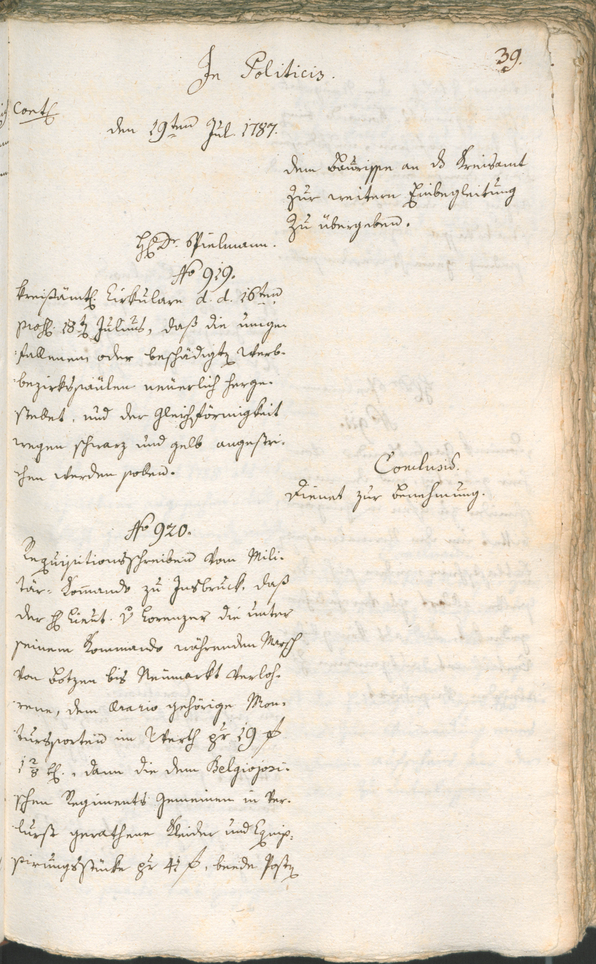 39.
In Politicis.
Cont.
den 19ten Jul. 1787.
dem Baurissen an ds Kreisamt
zur weitern Einbegleitung
zu übergeben.
H. Dr. Spielmann.
No 919.
Kreisämtl. Cirkulare d. d. 16ten
prs. 18t Julius, daß die umge-
fallenen oder beschädigte Werb-
bezirkssäulen neuerlich herge-
stellet, und der Gleichförmigkeit
wegen schwarz und gelb angestri-
chen werden sollen.
Conclusis.
Dienet zur Benehmung.
No 920.
Requisitionsschreiben vom Mili-
tär-Kommando zu Insbruck, daß
der H. Lieut. v Lorenzer die unter
seinem Kommando währenden Marsch
von Botzen bis Neumarkt verloh-
rene, dem Aerario gehörige Mon-
tursporten im Werth pr 19 f
1 2/8 , dann die dem Belgiojosi-
schen Regiments Gemeinen in Ver-
lurst gerathene Kleider und Equip-
pirungsstücke pr 41 f, beede Post